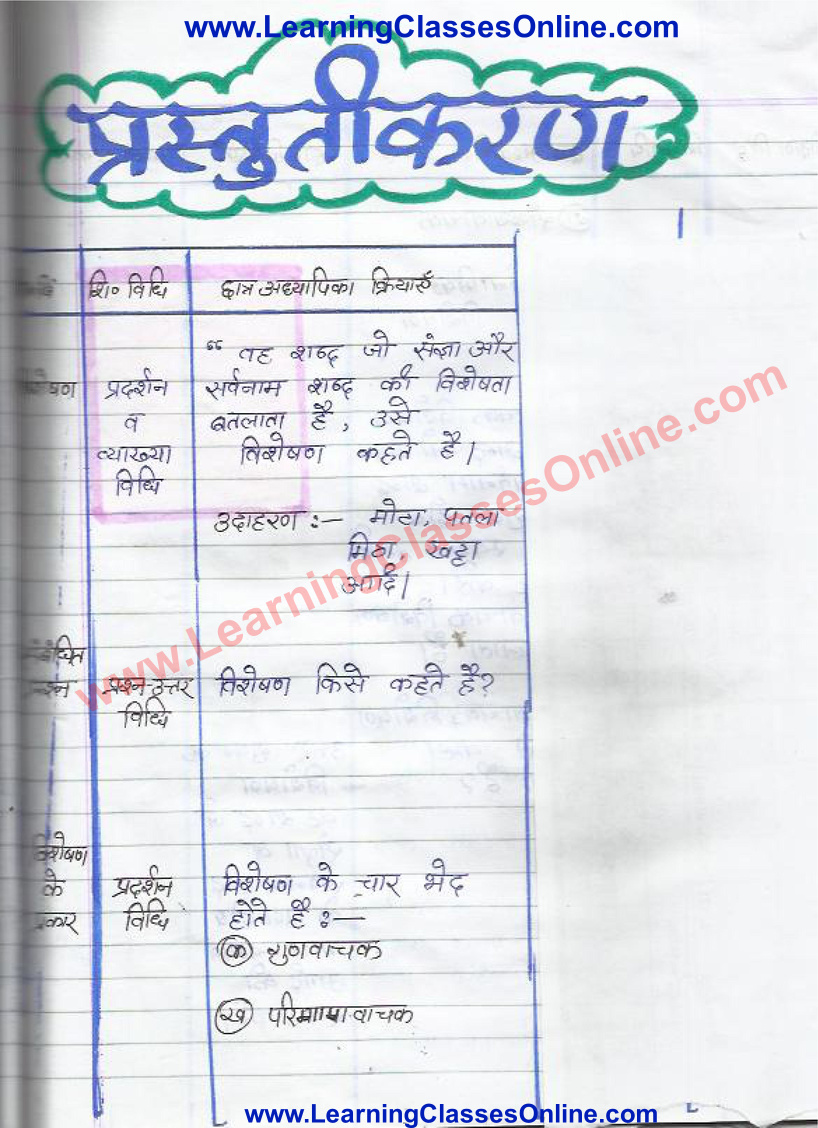 www.LearningClassesOnline.com
प्रस्तुतीकरण
शि० विधि छात्र अध्यापिका क्रियाएँ
“ वह शब्द जो संज्ञा और
प्रदर्शन सर्वनाम शब्द की विशेषता
व बतलाता है , उसे
व्याख्या विशेषण कहते है।
विधि
उदाहरण :— मोटा, पतला
मिठा, खट्टा
आदि।
www.LearningClassesOnline.com
प्रश्न उत्तर विशेषण किसे कहते है?
विधि
विशेषण
के प्रदर्शन विशेषण के चार भेद
विधि होते है :—
(क) गुणवाचक
(ख) परिमाणवाचक
www.LearningClassesOnline.com